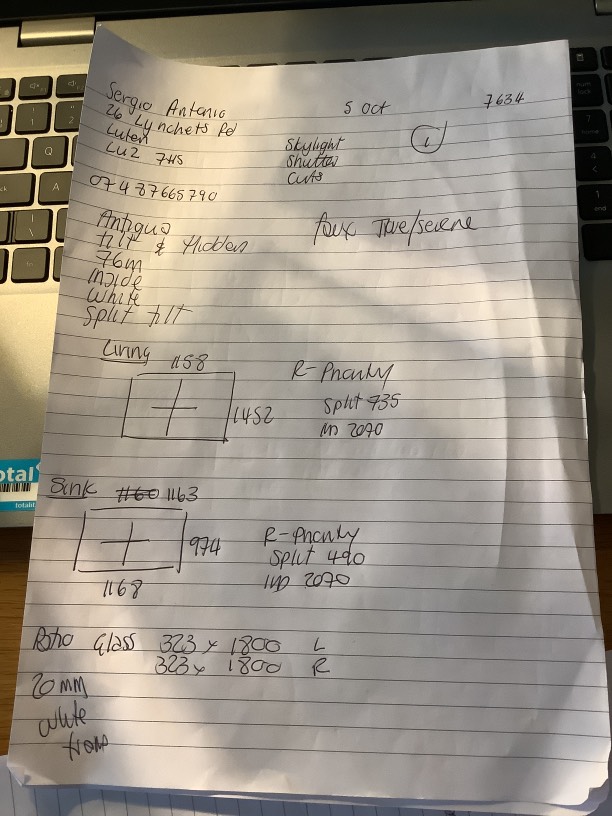 Sergio Antonio
5 Oct
7634
26 Lynchets Rd
Luten
LU2 7HS
Skylight
Shutter
Cuts
i
07487665790
Antigua
tilt & Hidden
faux True/serene
76m
Inside
White
Split tilt
Living 1158
1452
R-
Split 735
2070
Sink 1160 1163
974
R-
Split 490
2070
1168
Patio Glass 323 x 1800 L
323 x 1800 R
20mm
White
otal
totalit